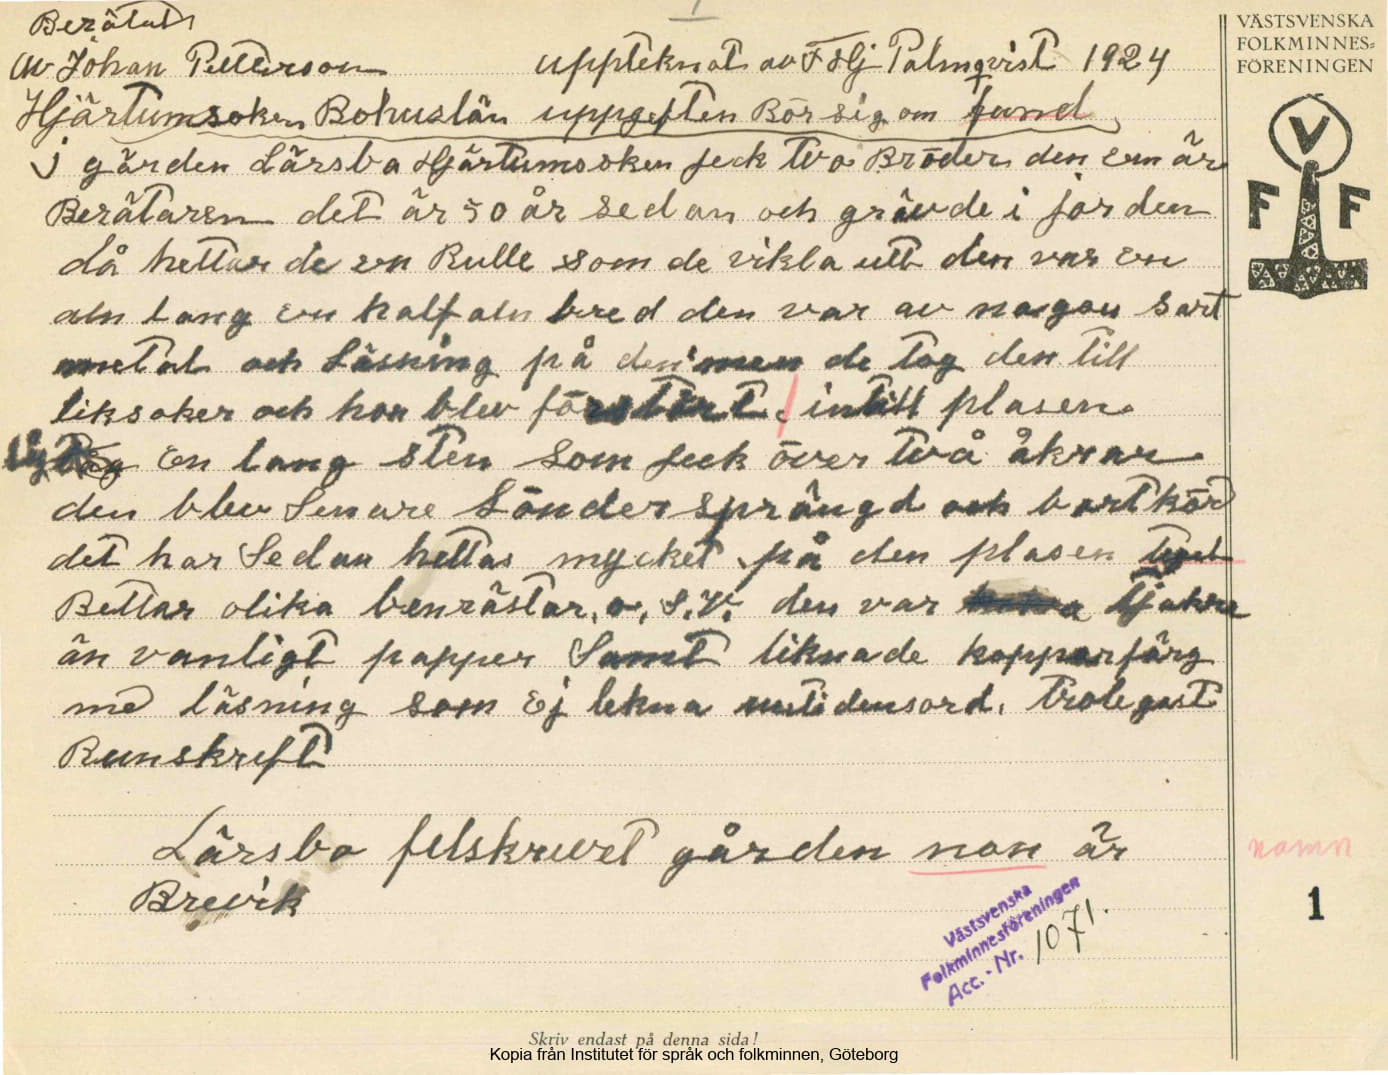 Berätat
av Johan Petterson uppteknat av F Hj Palmqvist 1924
Hjärtumsoken Bohuslän uppgeften Rör sig om fund
i gården Lärsbo Hjärtumsoken feck tvo Bröder den een är
Berätaren det är 50 år sedan och grävde i jorden
då hettar de en Rulle som de vikla utt den var en
aln lang en half aln bred den var av nagon sort
metal och Läsning på den men de tog den till
liksaker och hon blev förstört. intill plasen
låg en lang sten som feck över två åkrar
den blev Senare Söndersprängd och bortkörd
det har Sedan hettas mycket på den plasen tegel
Bettar olika benrästar, o, s.v. den var tjokre
än vanligt papper Samt liknade kopparfärg
med läsning som ej lekna nutidensord, troligast
Runskreft
Lärsbo felskrevet gården non är
Brevik
namn
1
VÄSTSVENSKA
FOLKMINNES=
FÖRENINGEN
V
F F
Västsvenska
Folkminnesföreningen
Acc.-Nr. 1071.
Skriv endast på denna sida!
Kopia från Institutet för språk och folkminnen, Göteborg